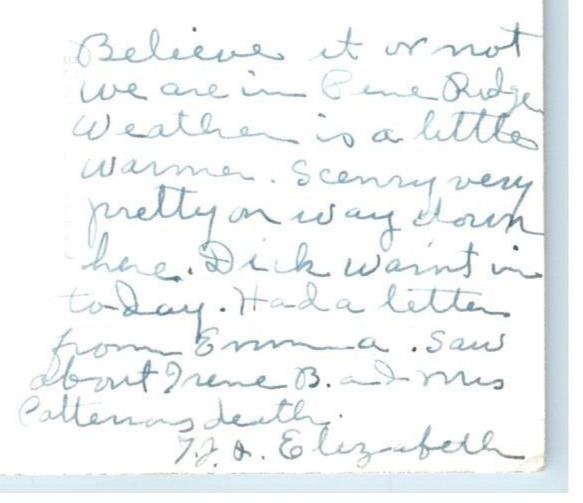 Believe it or not
we are in Pine Ridge
Weather is a little
warmer. Scenry very
pretty on way down
here. Dick warnt in
today. Had a letter
from Emma. Saw
about Irene B. and Mrs
Pattersons death.
Elizabeth